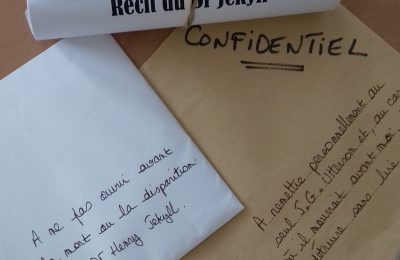 Récit du Dr Jekyll
CONFIDENTIEL
A ne pas ouvrir avant
la mort ou la disparition
Dr Henry Jekyll.
A remettre personnellement au
seul J.G. Utterson et, au cas
où il mourait avant moi, à
détruire sans lire